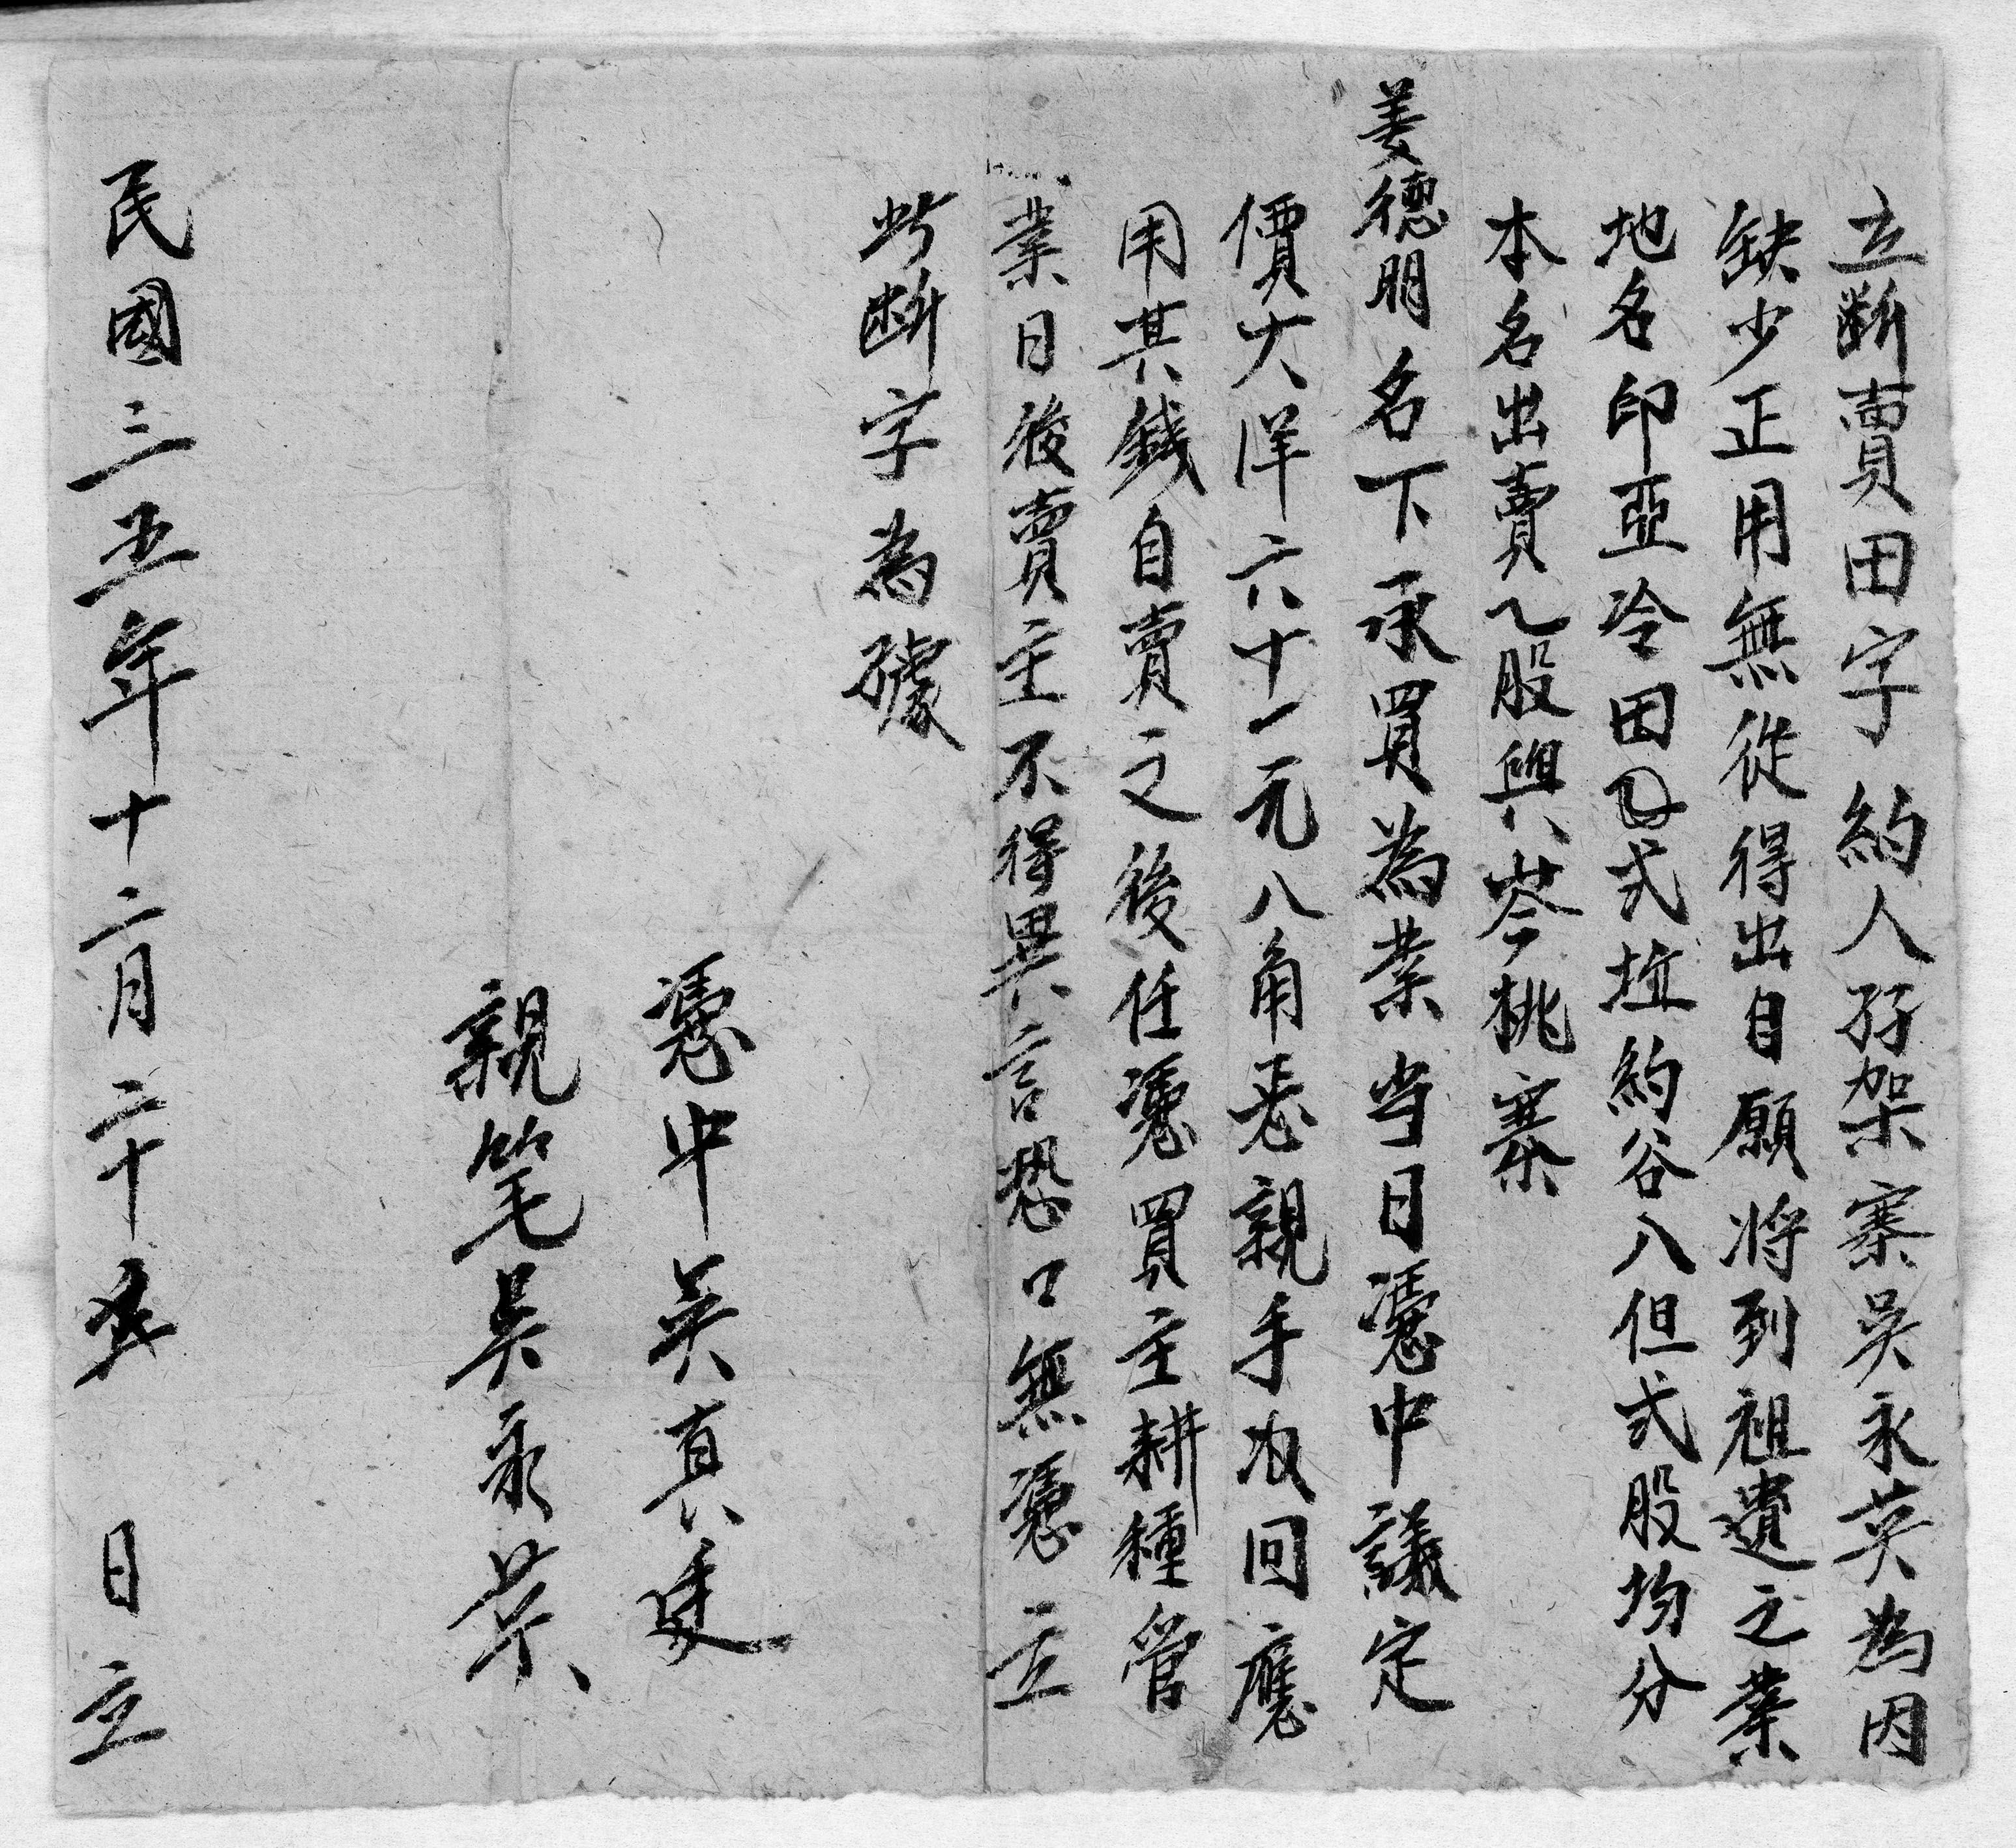 立斷賣田字約人孖架寨吳永英為因
缺少正用無從得出自願将到祖遺之業
地名印亞冷田弍坵約谷八但弍股均分
本名出賣乙股與岑桃寨
姜德明名下承買為業当日憑中議定
價大洋六十一元八角悉親手收回應
用其錢自賣之後任憑買主耕種管
業日後賣主不得異言恐口無憑立
此斷字為據
憑中吳真廷
親笔吳永英
民國三五年十二月二十五日立